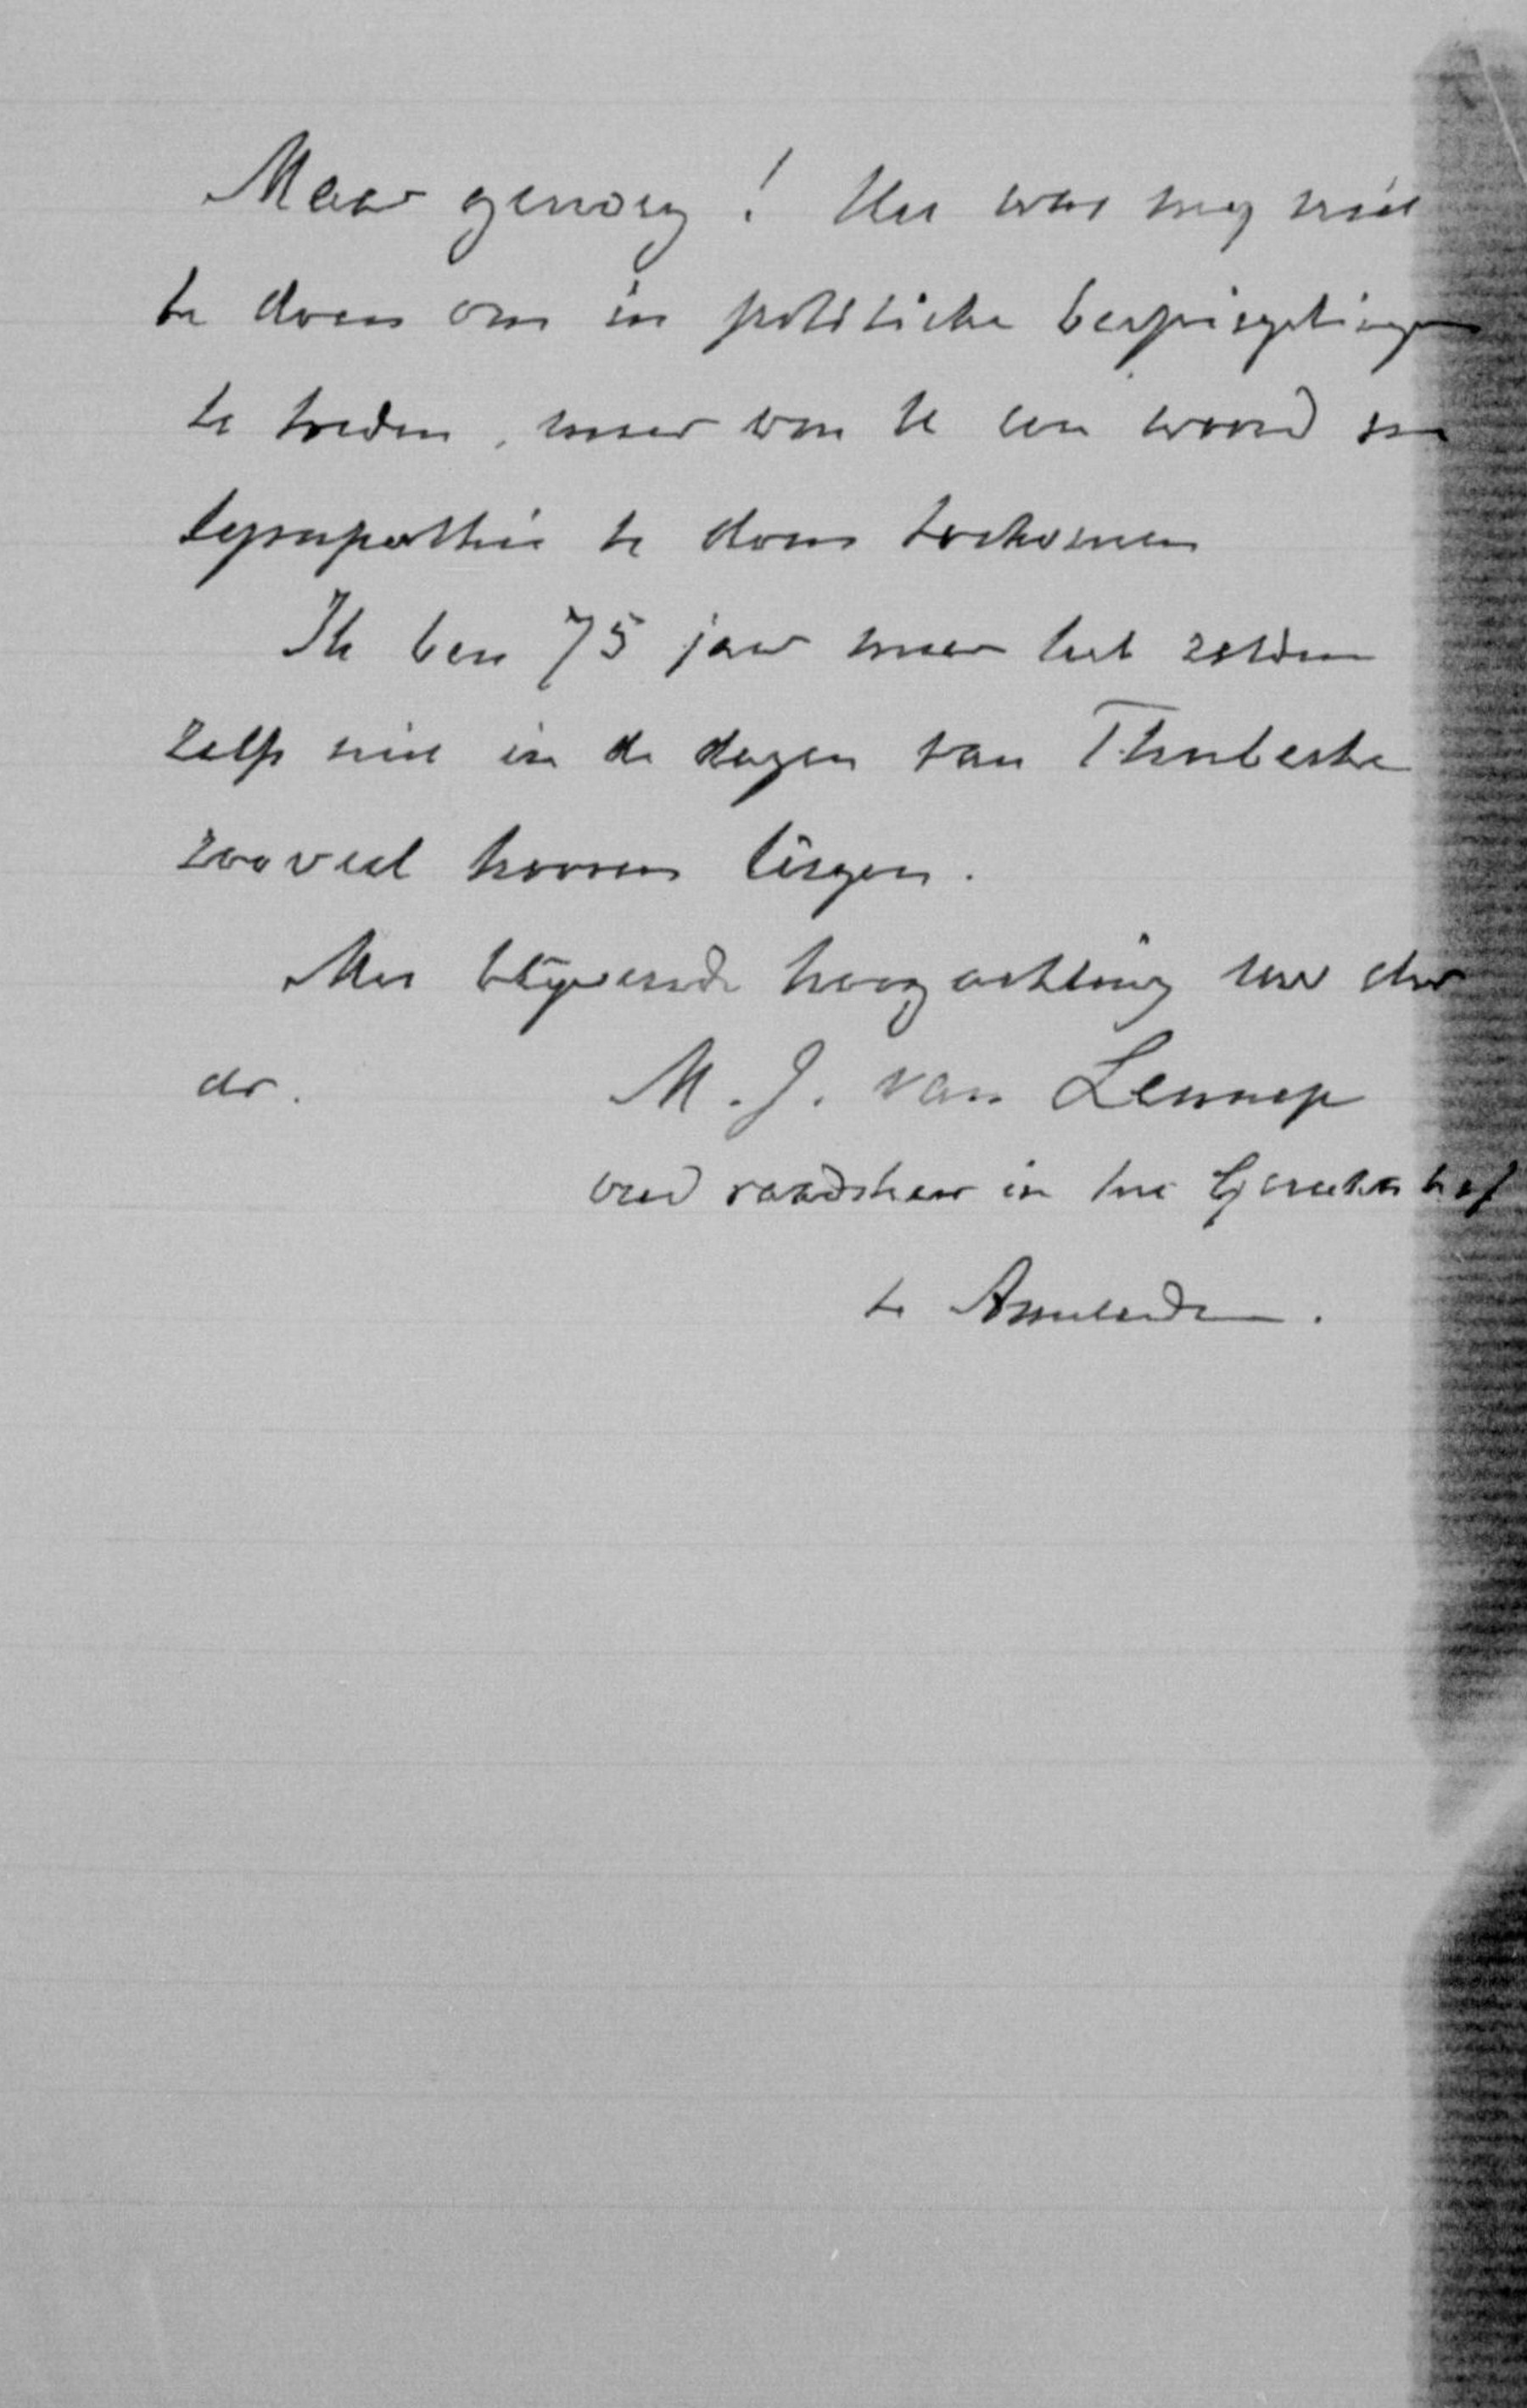 Maar genoeg! Het was mij niet
te doen om in politieke bespiegelingen
te treden, maar om U een woord van
sympathie te doen toekomen
Ik ben 75 jaar maar heb zelden
zelfs niet in de dagen van Thorbecke
zooveel hooren liegen.
Met blijvende hoogachting uw dw
dr. M. J. van Lennep
oud raadsheer in het Gerechtshof
te Amsterdam.